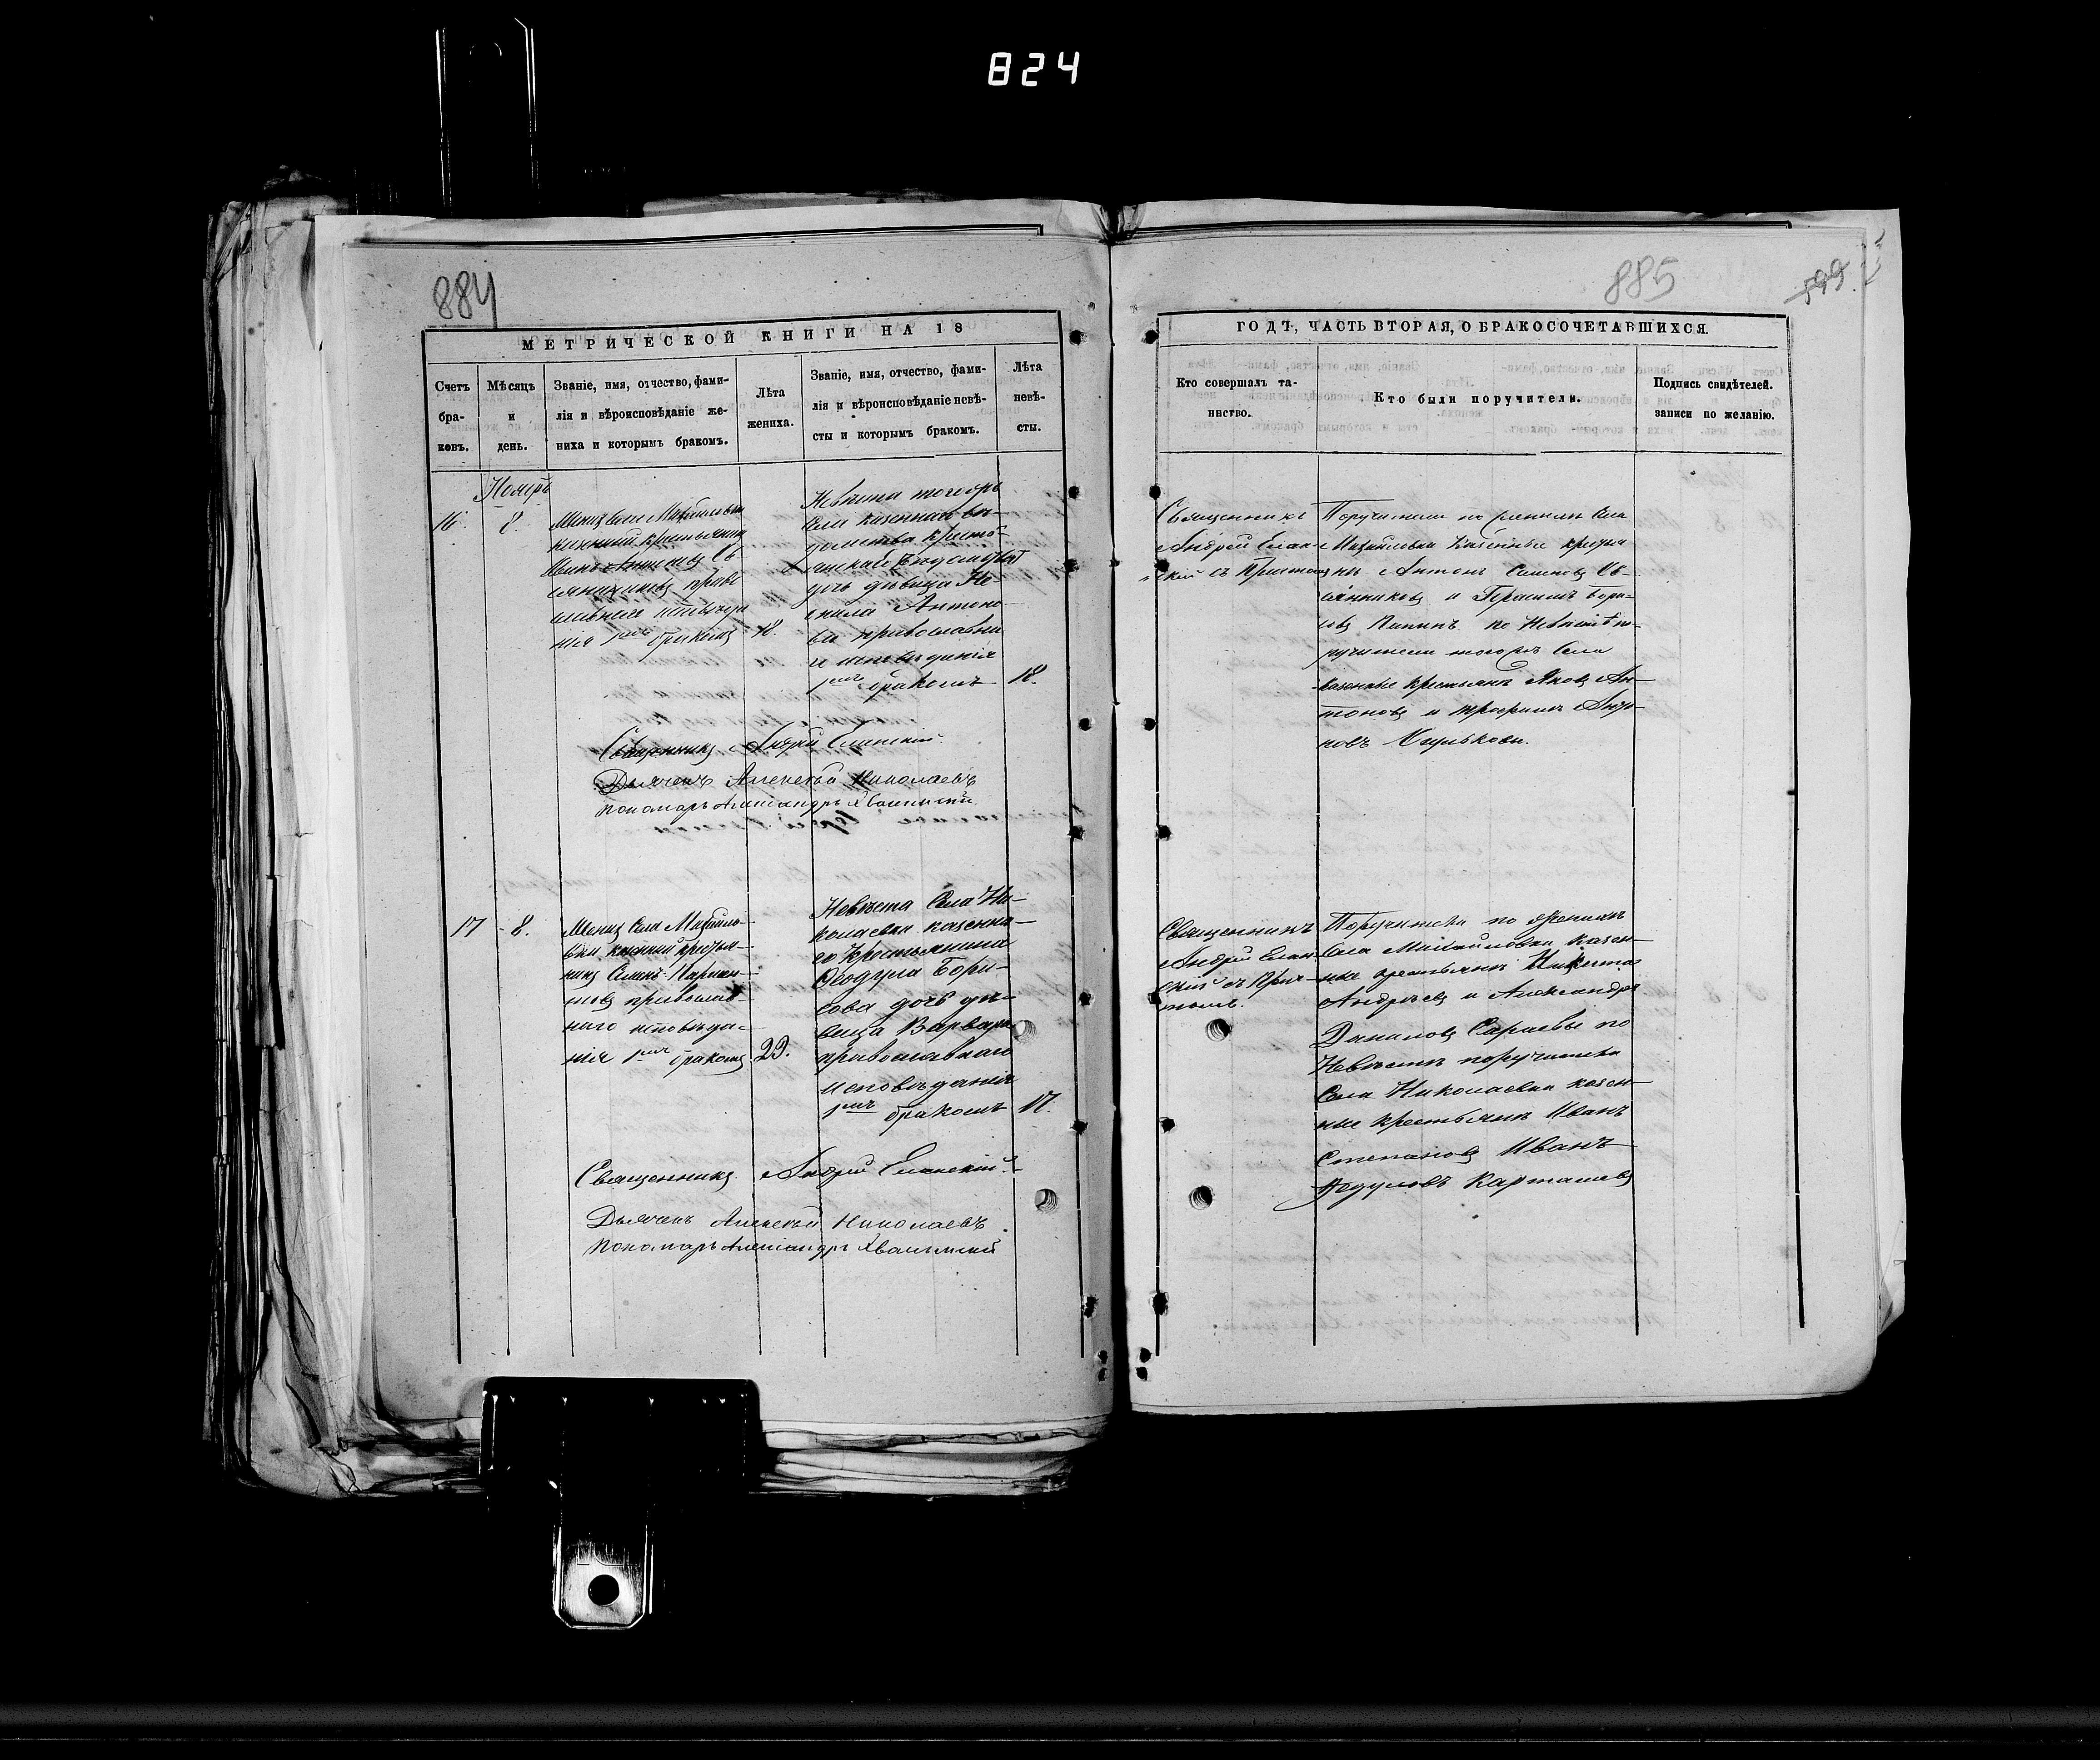 824
884
МЕТРИЧЕСКОЙ КНИГИ НА 18
Счетъ бра-ковъ.
Мѣсяцъ и день.
Званіе, имя, отчество, фами-
лія и вѣроисповѣданіе же-
ниха и которымъ бракомъ.
Лѣта жениха.
Званіе, имя, отчество, фами-
лія и вѣроисповѣданіе невѣ-
сты и которымъ бракомъ.
Лѣта невѣ-сты.
Ноябрь
16
8.
Женихъ Села Михайловки
казенный крестьянинъ
православ
наго исповѣда
нія 1мъ бракомъ
18.
Невѣста тогожъ
Села казеннаго вѣ-
домства кресть-
дочь дѣвица Не-
онила Антоно-
ва православна
го исповѣданія
1мъ бракомъ
18.
Священникъ Андрей Еланскій.
Дьячекъ Алексѣй Николаевъ
пономарь Александръ
17
8.
Женихъ Села Михайло-
вки казенный крестья-
нинъ
православ-
наго исповѣда-
нія 1мъ бракомъ
22.
Невѣста Села Ни-
колаевки казенна-
го крестьянина
Ѳеодула Бори-
сова дочь дѣ-
вица Варвара
православнаго
исповѣданія
1мъ бракомъ
17.
Священникъ Андрей Еланскій.
Дьячекъ Алексѣй Николаевъ
пономарь Александръ
885
ГОДЪ, ЧАСТЬ ВТОРАЯ, О БРАКОСОЧЕТАВШИХСЯ.
Кто совершалъ та-
инство.
Кто были поручители.
Подпись свидѣтелей.
записи по желанію.
Священникъ
Андрей Елан-
скій съ Причтомъ
Поручители по женихѣ Села
Михайловки казенные крестья
не Антонъ Семеновъ Ов-
сянниковъ и Герасимъ Бори-
совъ по Невѣстѣ по-
ручители тогожъ Села
казенные крестьяне Яковъ Ан-
тоновъ и Трофимъ Анто-
новъ
Священникъ
Андрей Елан-
скій съ Прич-
томъ.
Поручители по женихѣ
Села Михайловки казен-
ные крестьяне Никита
Андреевъ и Александръ
Даниловъ Сараевы по
Невѣстѣ поручители
Села Николаевки казен-
ные крестьяне Иванъ
Степановъ Иванъ
Ѳедуловъ Карташевъ